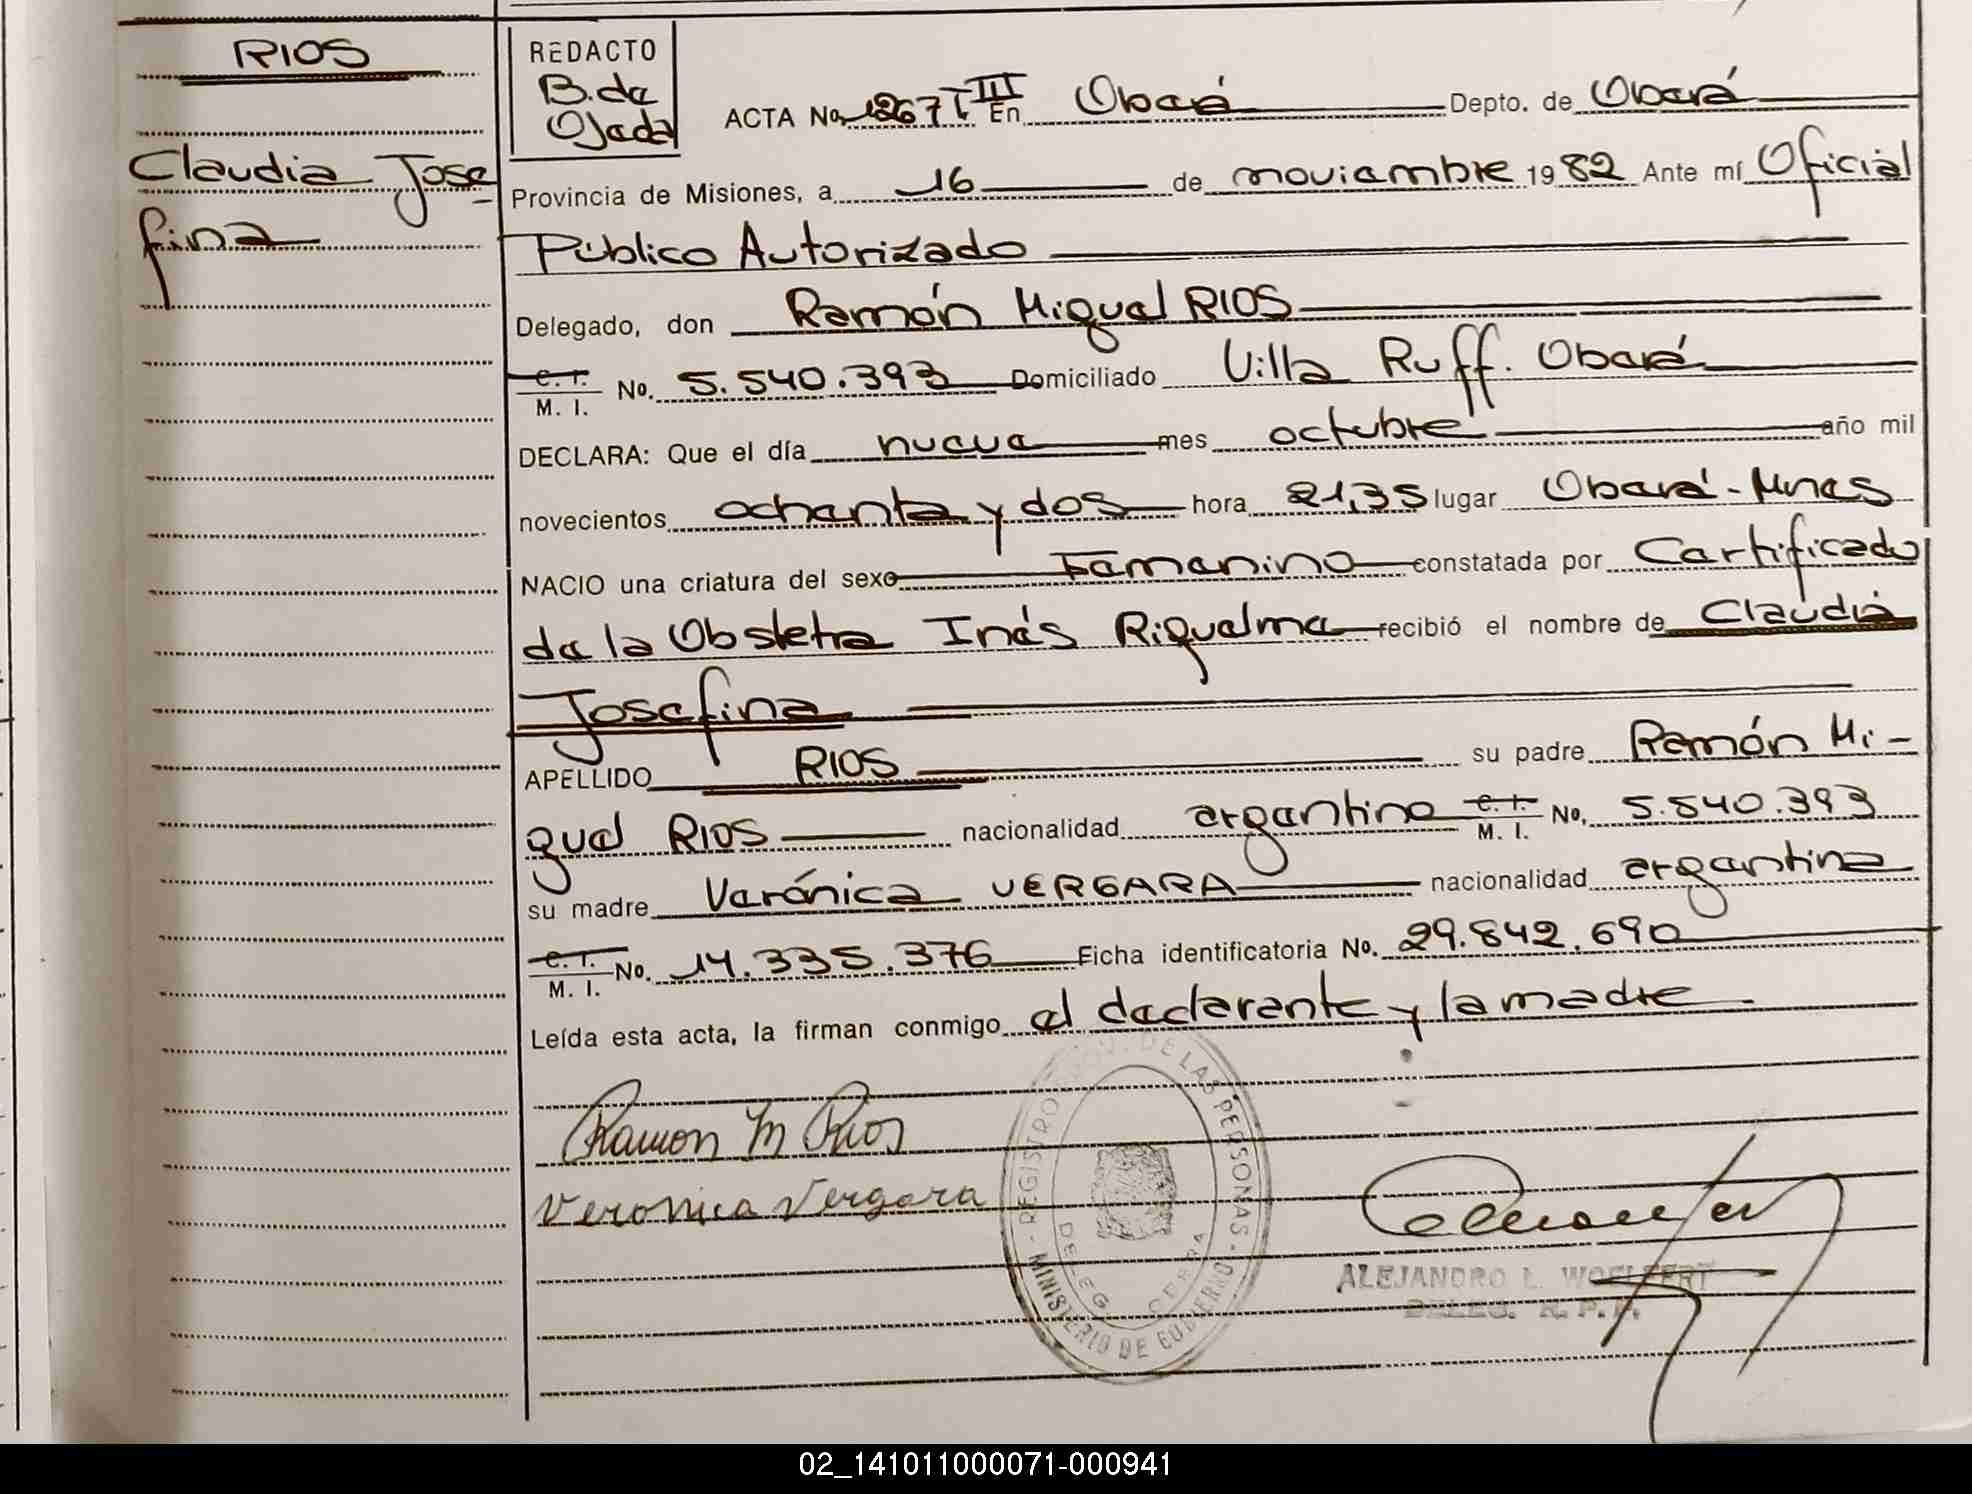 RIOS
Claudia Jose
fina
REDACTO
B. de
Ojeda
ACTA No. 1267 T III En Oberá Depto. de Oberá
Provincia de Misiones, a 16 de noviembre 1982 Ante mí Oficial
Público Autorizado
Delegado, don Ramón Miguel RIOS
C. I. M. I. No. 5.540.393 Domiciliado Villa Ruff. Oberá
DECLARA: Que el día nueve mes octubre año mil
novecientos ochenta y dos hora 21,35 lugar Oberá - Mnes
NACIO una criatura del sexo Femenino constatada por Certificado
de la Obstetra Inés Riquelme recibió el nombre de Claudia
Josefina
APELLIDO RIOS su padre Ramón Mi-
guel RIOS nacionalidad argentino C. I. M. I. No. 5.540.393
su madre Verónica VERGARA nacionalidad argentina
C. I. M. I. No. 14.335.376 Ficha identificatoria No. 29.842.690
Leída esta acta, la firman conmigo el declarante y la madre.
Ramon M Rios
Veronica Vergara
REGISTRO DE LAS PERSONAS - MINISTERIO DE GOBIERNO -
DELEG. OBERA
ALEJANDRO L. WOELFERT
DELEG. R. P. P.
02_141011000071-000941